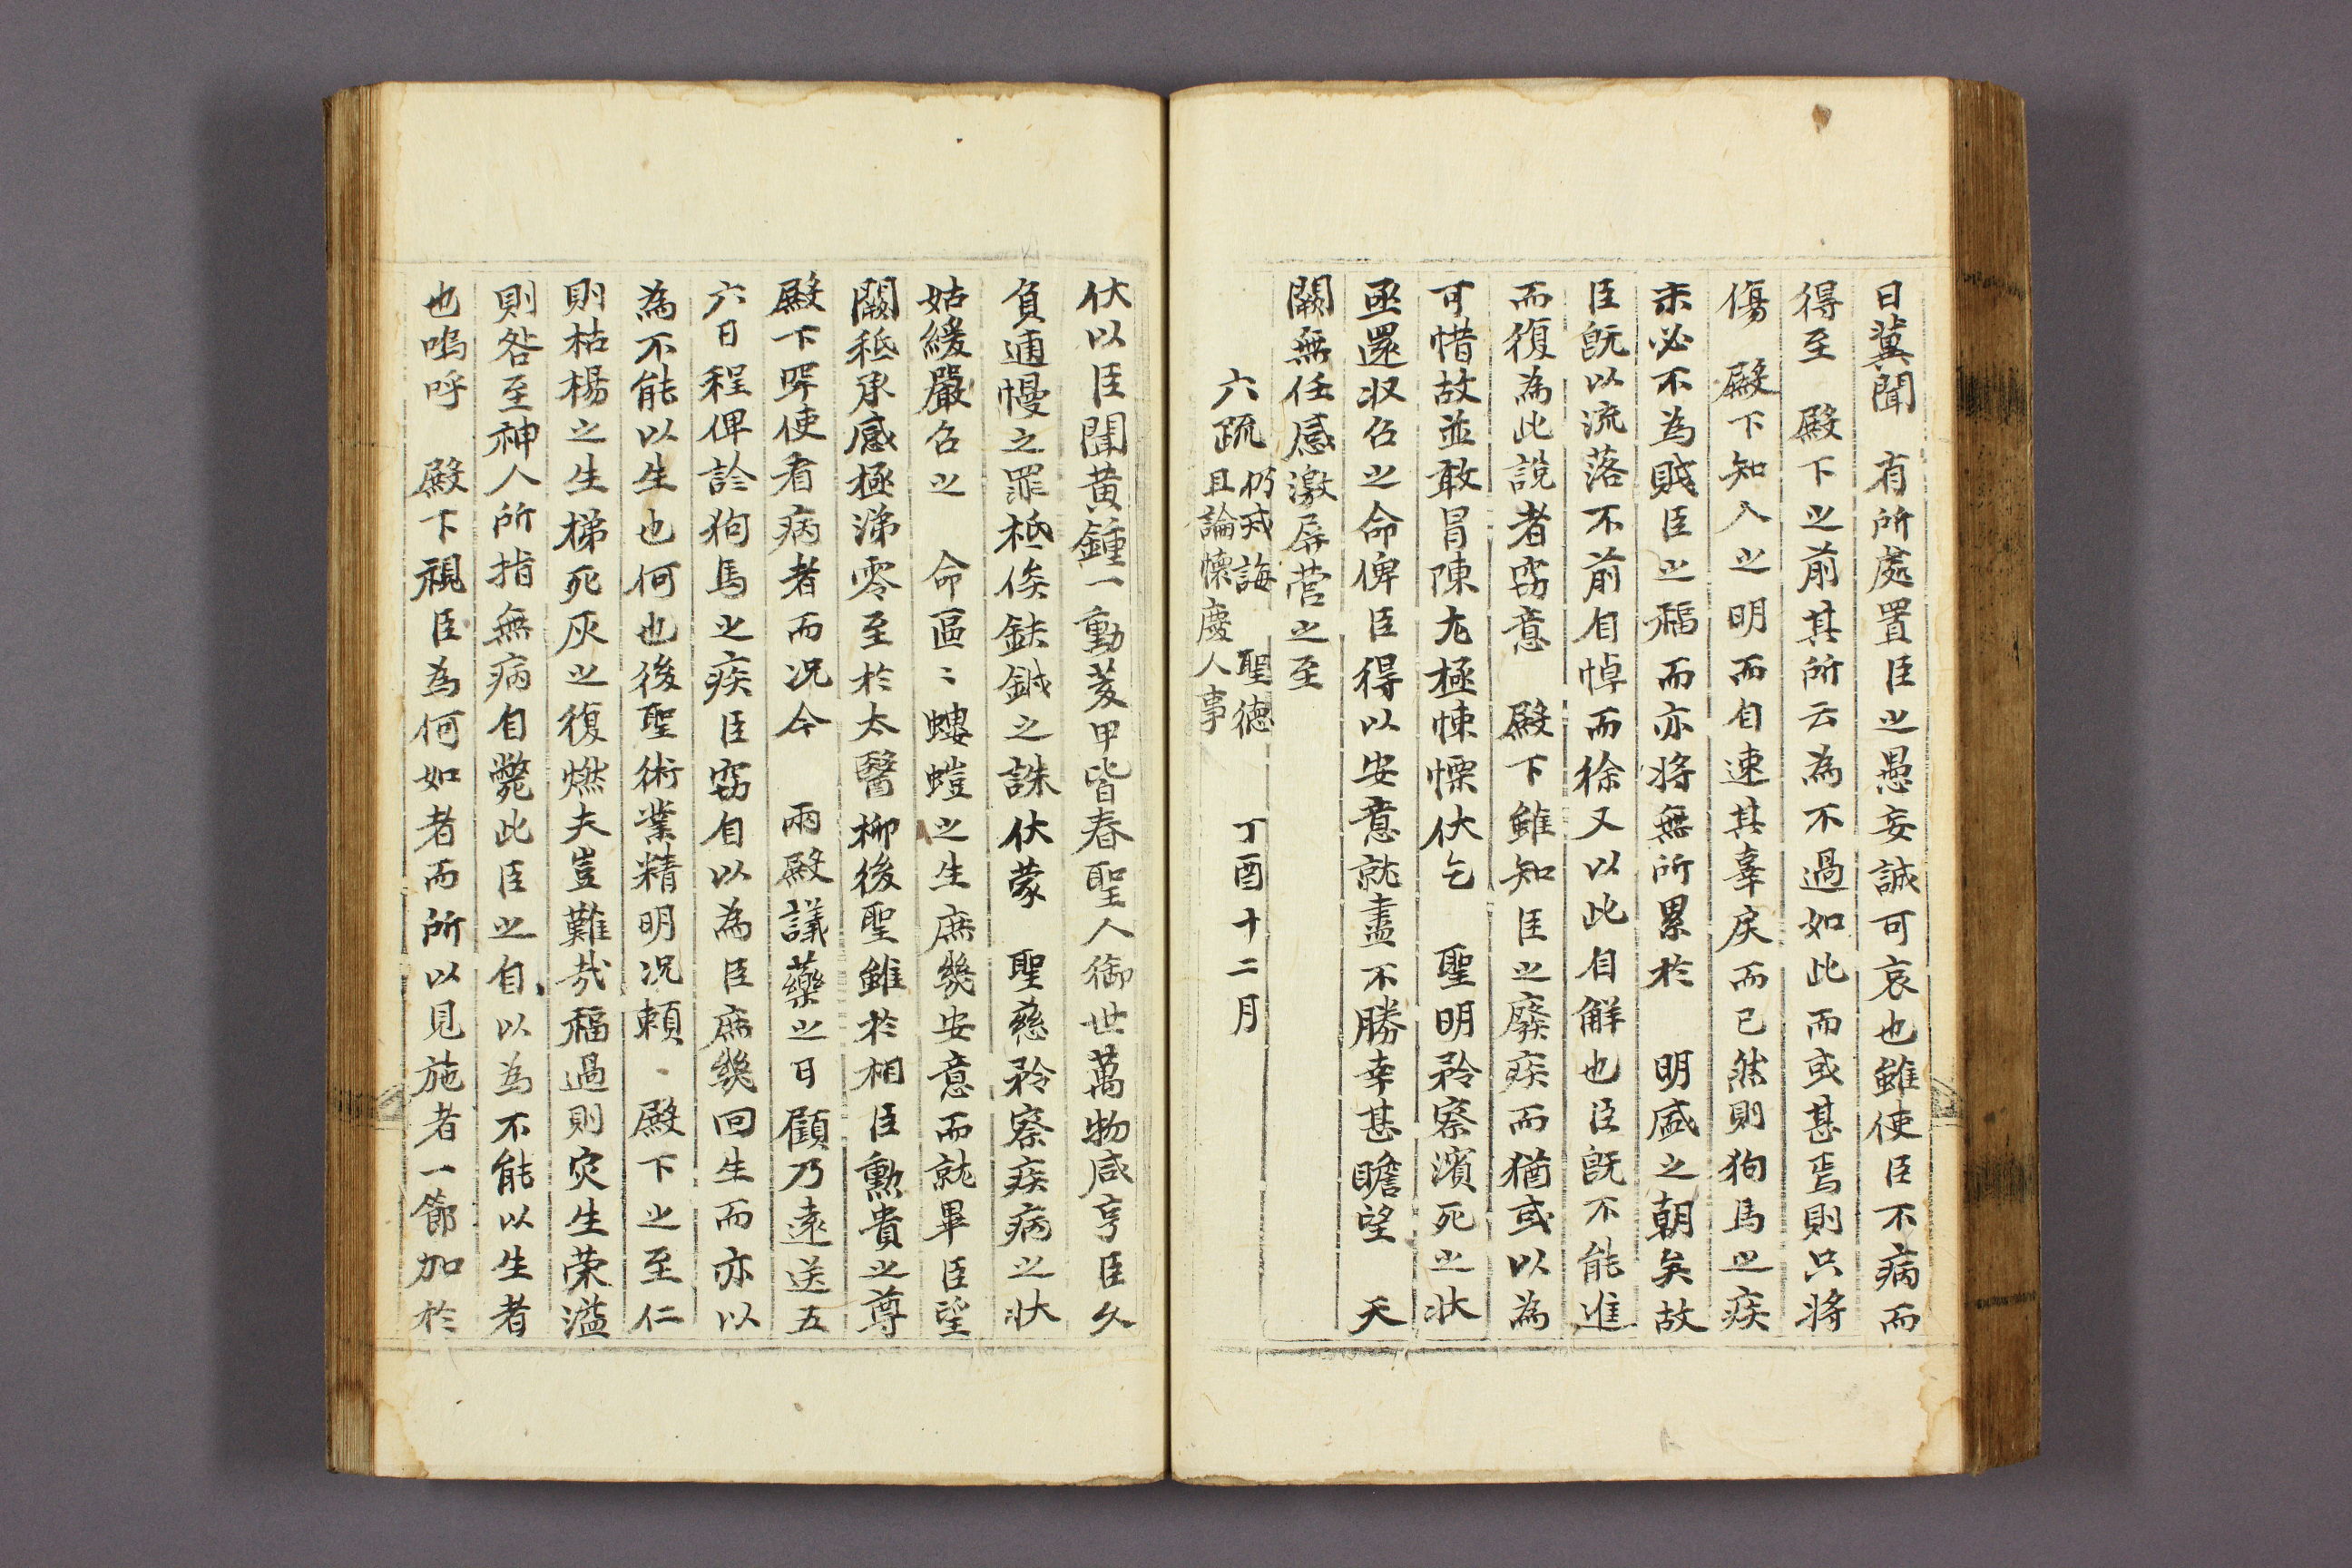 日冀聞　有所處置臣之愚妄誠可哀也雖使臣不病而
得至　殿下之前其所云為不過如此而或甚焉則只將
傷　殿下知人之明而自速其辜戾而已然則狗馬之疾
未必不為賤臣之福而亦將無所累於　明盛之朝矣故
臣旣以流落不前自悼而徐又以此自解也臣旣不能進
而復為此說者窃意　殿下雖知臣之廢疾而猶或以為
可惜故並敢冒陳尤極悚慄伏乞　聖明矜察濱死之狀
亟還收召之命俾臣得以安意就盡不勝幸甚瞻望　天
闕無任感激屏營之至
六疏　仍戒誨　聖德
且論懷慶人事　丁酉十二月
伏以臣聞黃鍾一動荄甲皆春聖人御世萬物咸亨臣久
負逋慢之罪秪俟鈇鉞之誅伏蒙　聖慈矜察疾病之狀
姑緩嚴召之　命區〻螻螘之生庶幾安意而就畢臣望
闕秪承感極涕零至於太醫柳後聖雖於相臣勲貴之尊
殿下罕使看病者而况今　兩殿議藥之日顧乃遠送五
六日程俾診狗馬之疾臣窃自以為臣庶幾回生而亦以
為不能以生也何也後聖術業精明况賴　殿下之至仁
則枯楊之生梯死灰之復燃夫豈難哉福過則灾生荣溢
則咎至神人所指無病自斃此臣之自以為不能以生者
也嗚呼　殿下視臣為何如者而所以見施者一節加於